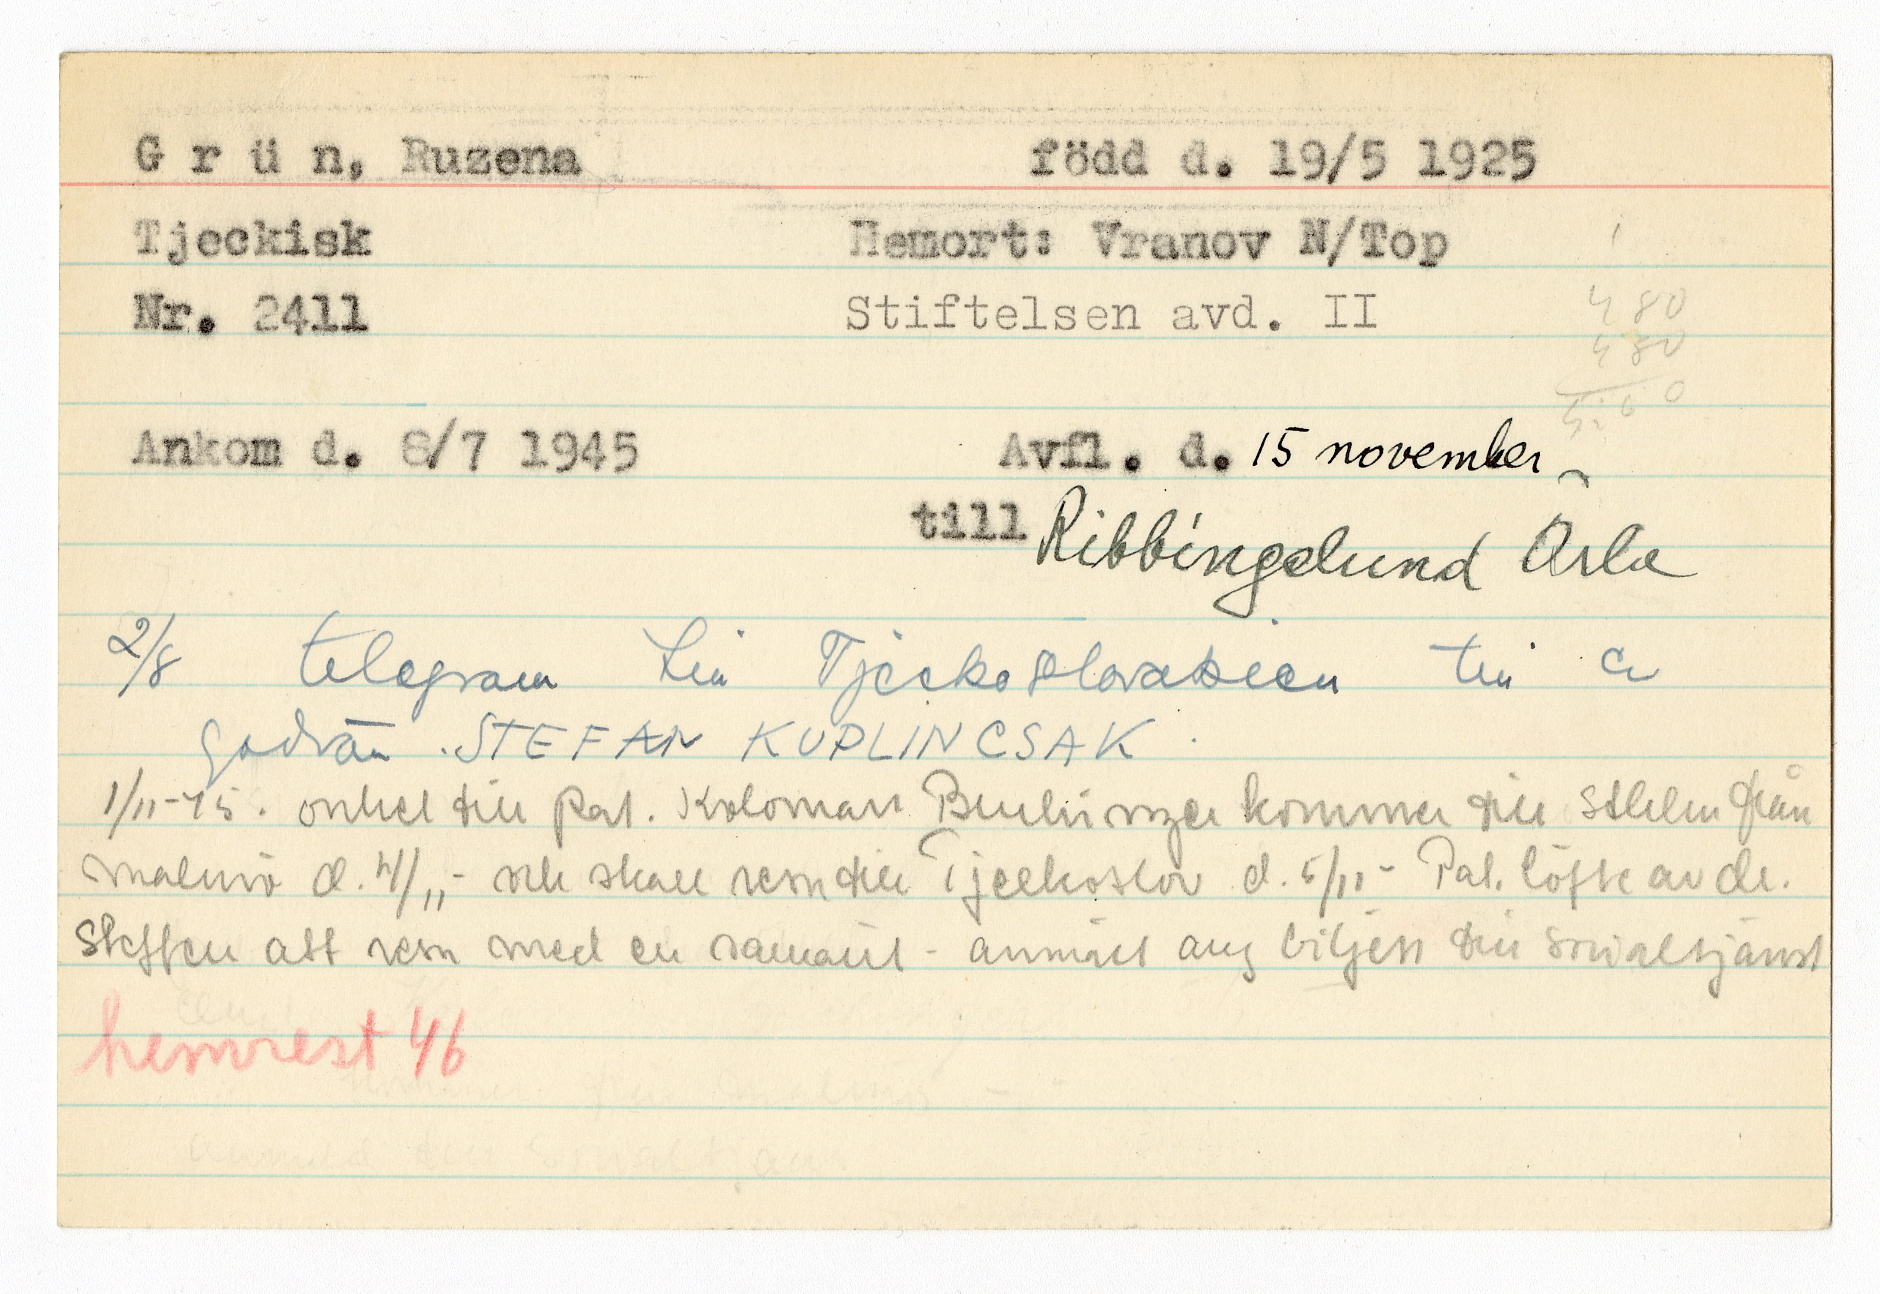 G r ü n, Ruzena född d. 19/5 1925
Tjeckisk Hemort: Vranov N/Top
Nr. 2411 Stiftelsen avd. II
4 80
4 80
Ankom d. 8/7 1945 Avfl. d. 15 november
till Ribbingelund Ösla
2/8 telegram till Tjeckoslovakien till
STEFAN KUPLINCSAK.
1/11-45. onkel till pat. Koloman kommer till Sthlm från
Malmö d. 4/11 - och skall resa till Tjeckoslov d. 5/11 - Pat. löfte av dr.
Steffen att resa med - anmält ang biljett till Socialtjänst
hemrest 46